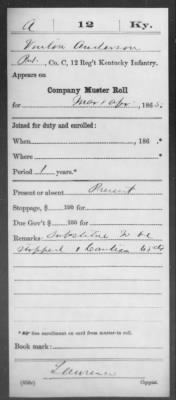 A 12 Ky.
Anderson
Pvt., Co. C, 12 Reg't Kentucky Infantry.
Appears on
Company Muster Roll
for Mar & Apr, 1865.
Joined for duty and enrolled:
When , 186 .*
Where
Period 1 years.*
Present or absent Present
Stoppage, $ 100 for
Due Gov't $ 100 for
Remarks: Substitute to be
stopped 1 Canteen
*See enrollment on card from muster-in roll.
Book mark:
Copyist.